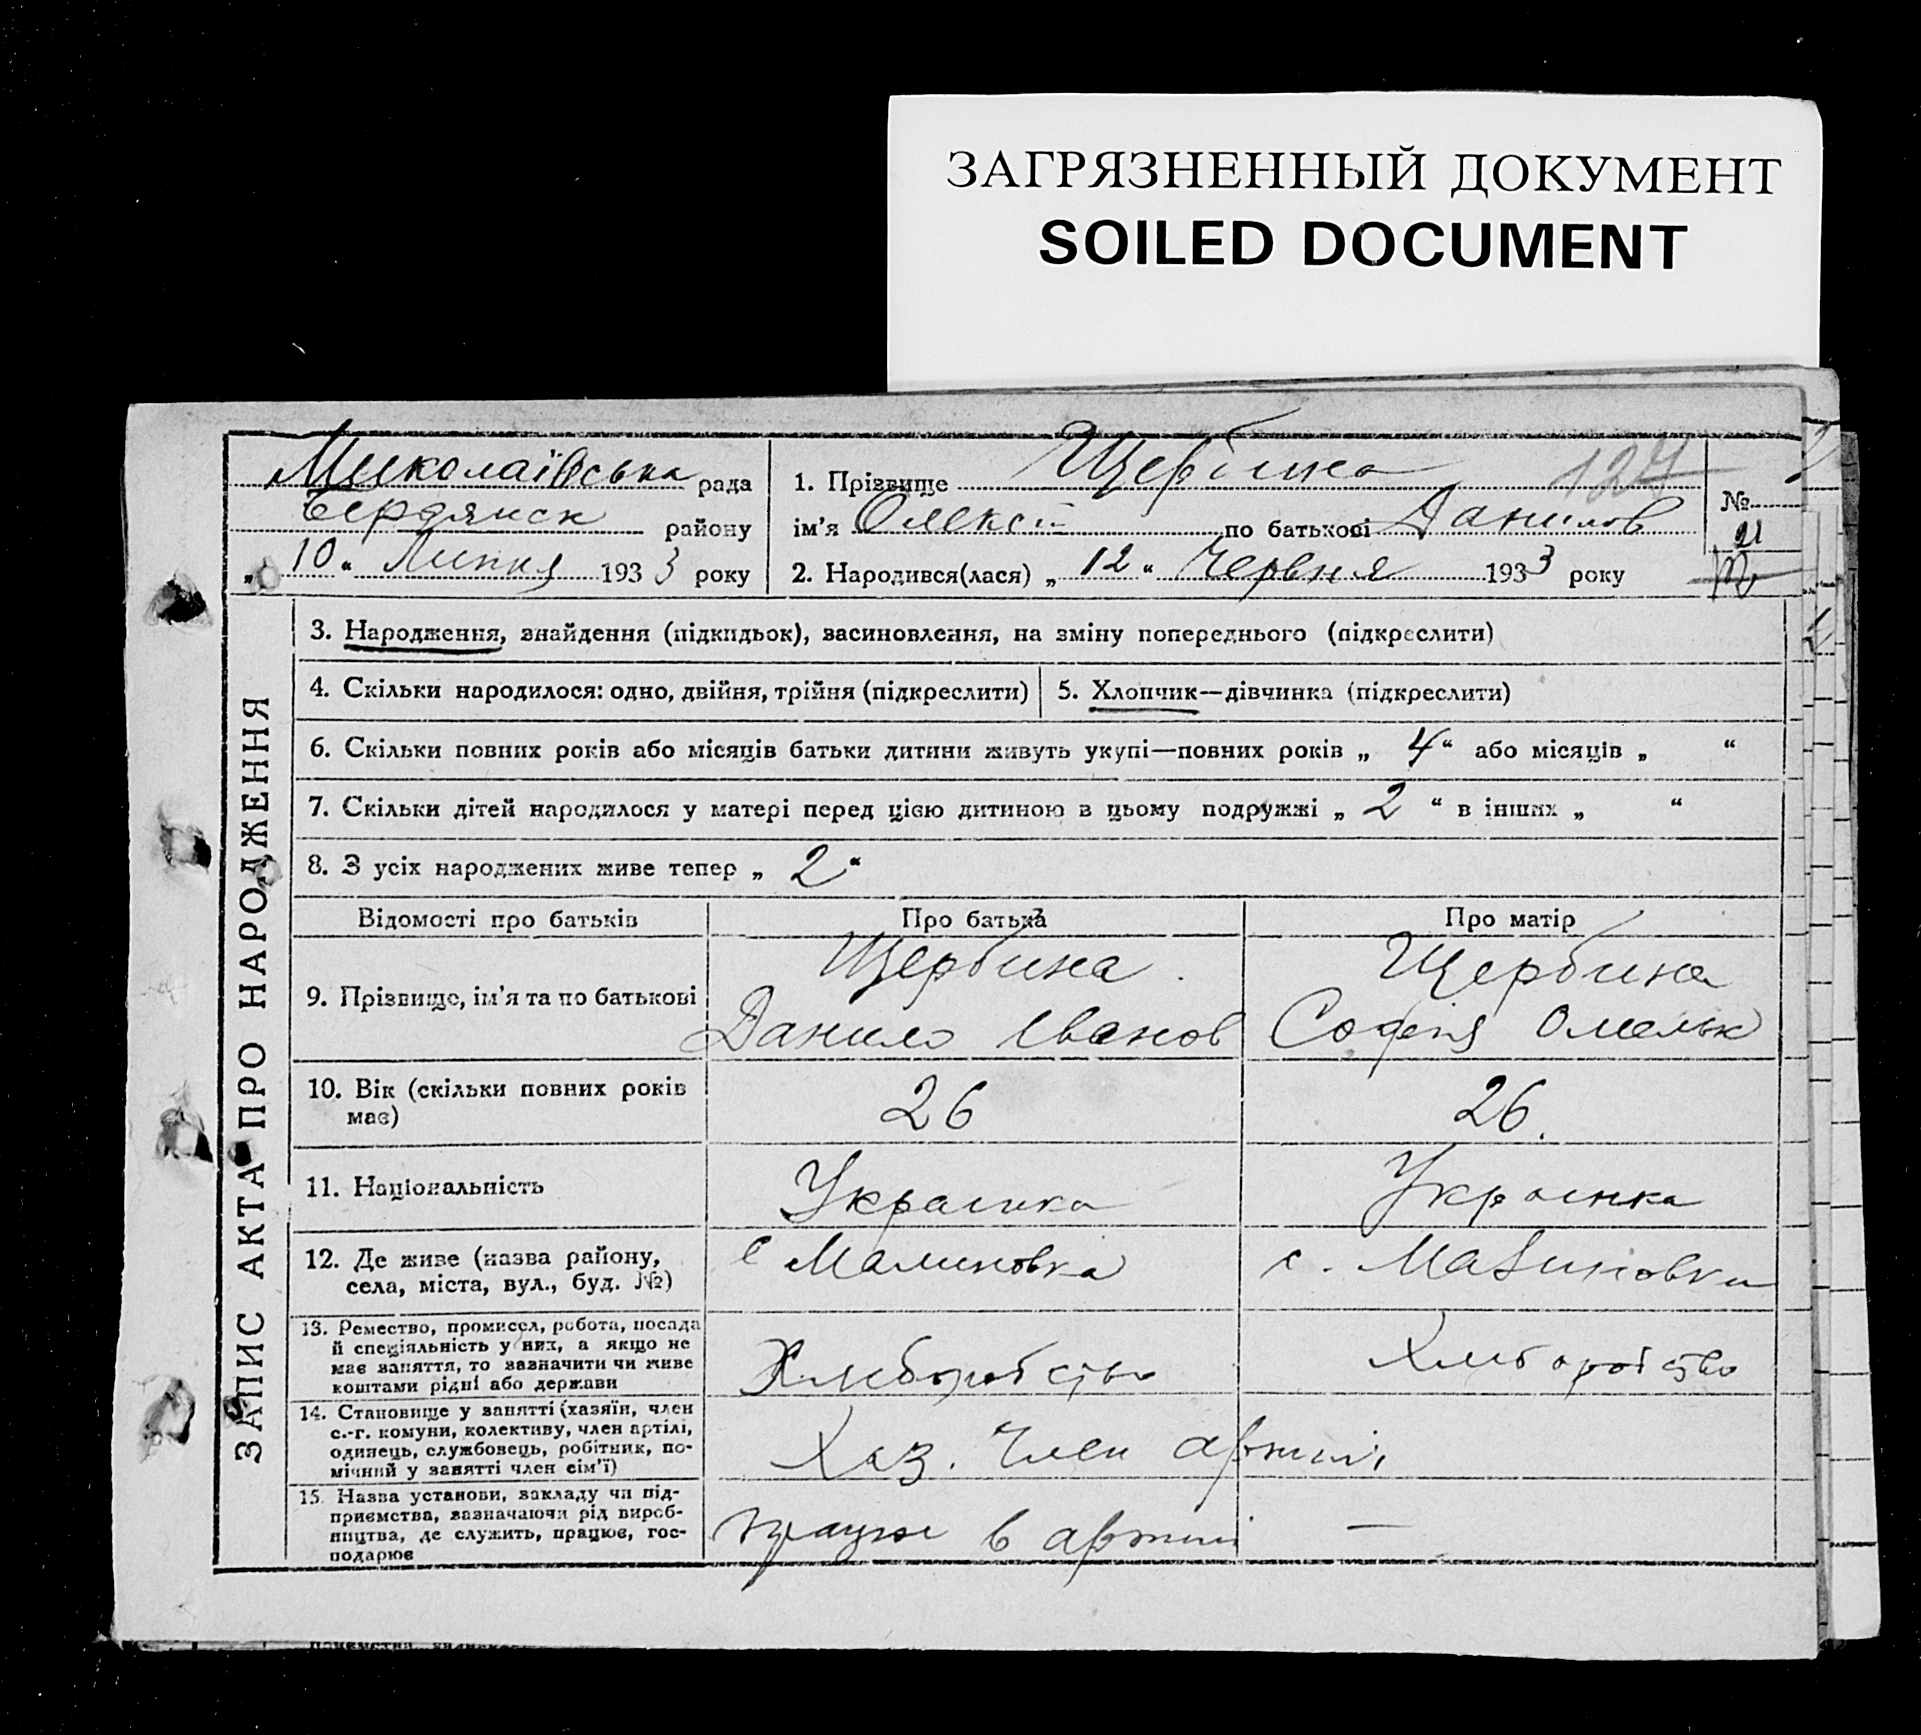 ЗАГРЯЗНЕННЫЙ ДОКУМЕНТ
SOILED DOCUMENT
Миколаївська рада
Бердянськ району
„ 10 “ Липня 1933 року
1. Прізвище Щербина 127
ім’я Олексій по батькові Данилов
2. Народився(лася) „ 12 “ Червня 1933 року
№
21
ЗАПИС АКТА ПРО НАРОДЖЕННЯ
3. Народження, знайдення (підкидьок), засиновлення, на зміну попереднього (підкреслити)
4. Скільки народилося: одно, двійня, трійня (підкреслити)
5. Хлопчик—дівчинка (підкреслити)
6. Скільки повних років або місяців батьки дитини живуть укупі—повних років „ 4 “ або місяців „ “
7. Скільки дітей народилося у матері перед цією дитиною в цьому подружжі „ 2 “ в інших „ “
8. З усіх народжених живе тепер „ 2 “
Відомості про батьків
Про батька
Про матір
9. Прізвище, ім’я та по батькові
Щербина
Данило Іванов
Щербина
Софія Омельк
10. Вік (скільки повних років
має)
26
26.
11. Національність
Украинка
Украинка
12. Де живе (назва району,
села, міста, вул., буд. №)
с Малиновка
с. Малиновки
13. Ремество, промисел, робота, посада
й спеціяльність у них, а якщо не
має заняття, то зазначити чи живе
коштами рідні або держави
Хлиборобство
Хлиборобство
14. Становище у занятті (хазяїн, член
с.-г. комуни, колективу, член артілі,
одинець, службовець, робітник, по-
мічний у занятті член сім’ї)
Хаз. Член артилі
15. Назва установи, закладу чи під-
приємства, зазначаючи рід вироб-
ництва, де служить, працює, гос-
подарює
працює в артилі
—